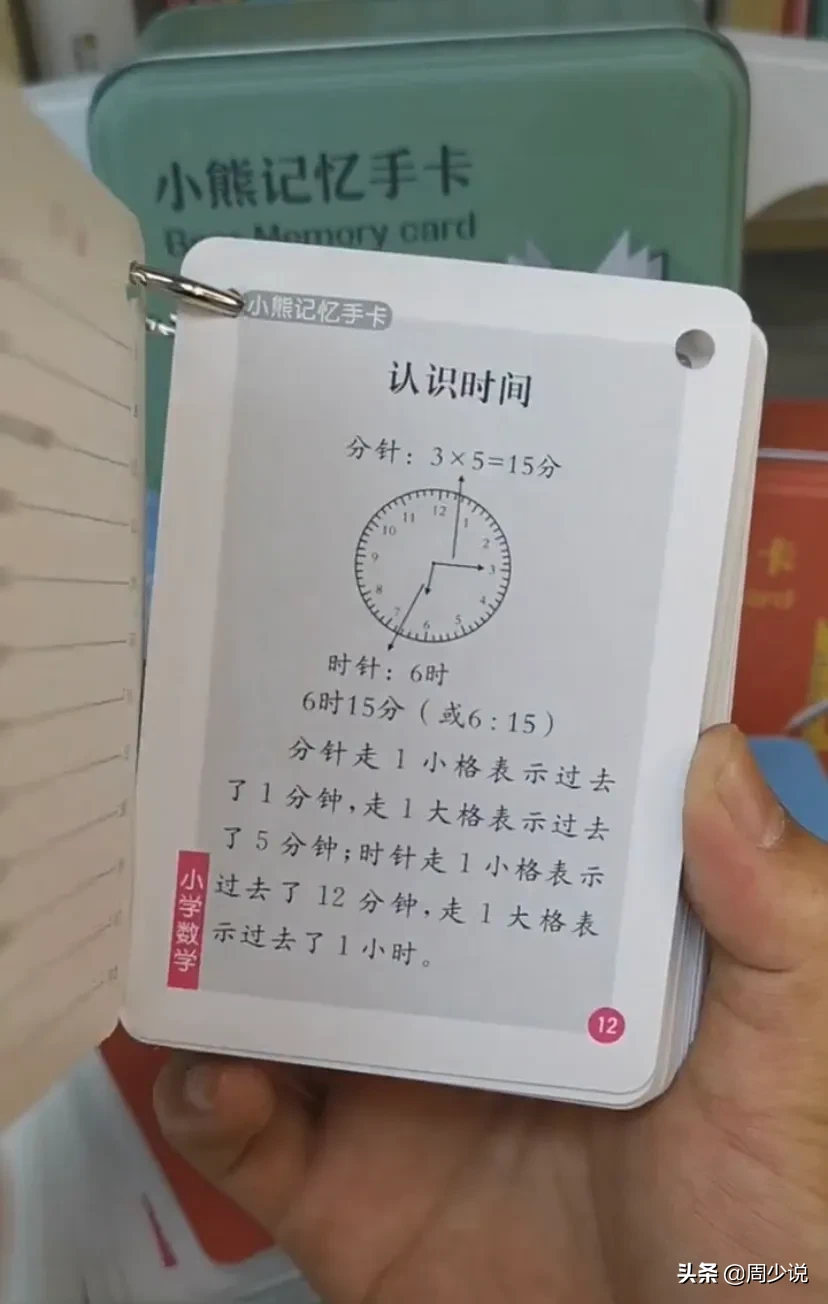 小熊记忆手卡
Bear Memory card
小熊记忆手卡
认识时间
分针：3×5=15分
12
11
1
10
2
9
3
8
4
7
5
6
时针：6时
6时15分（或6:15）
分针走1小格表示过去
了1分钟，走1大格表示过去
了5分钟；时针走1小格表示
过去了12分钟，走1大格表
示过去了1小时。
小学数学
12
卡
头条 @周少说